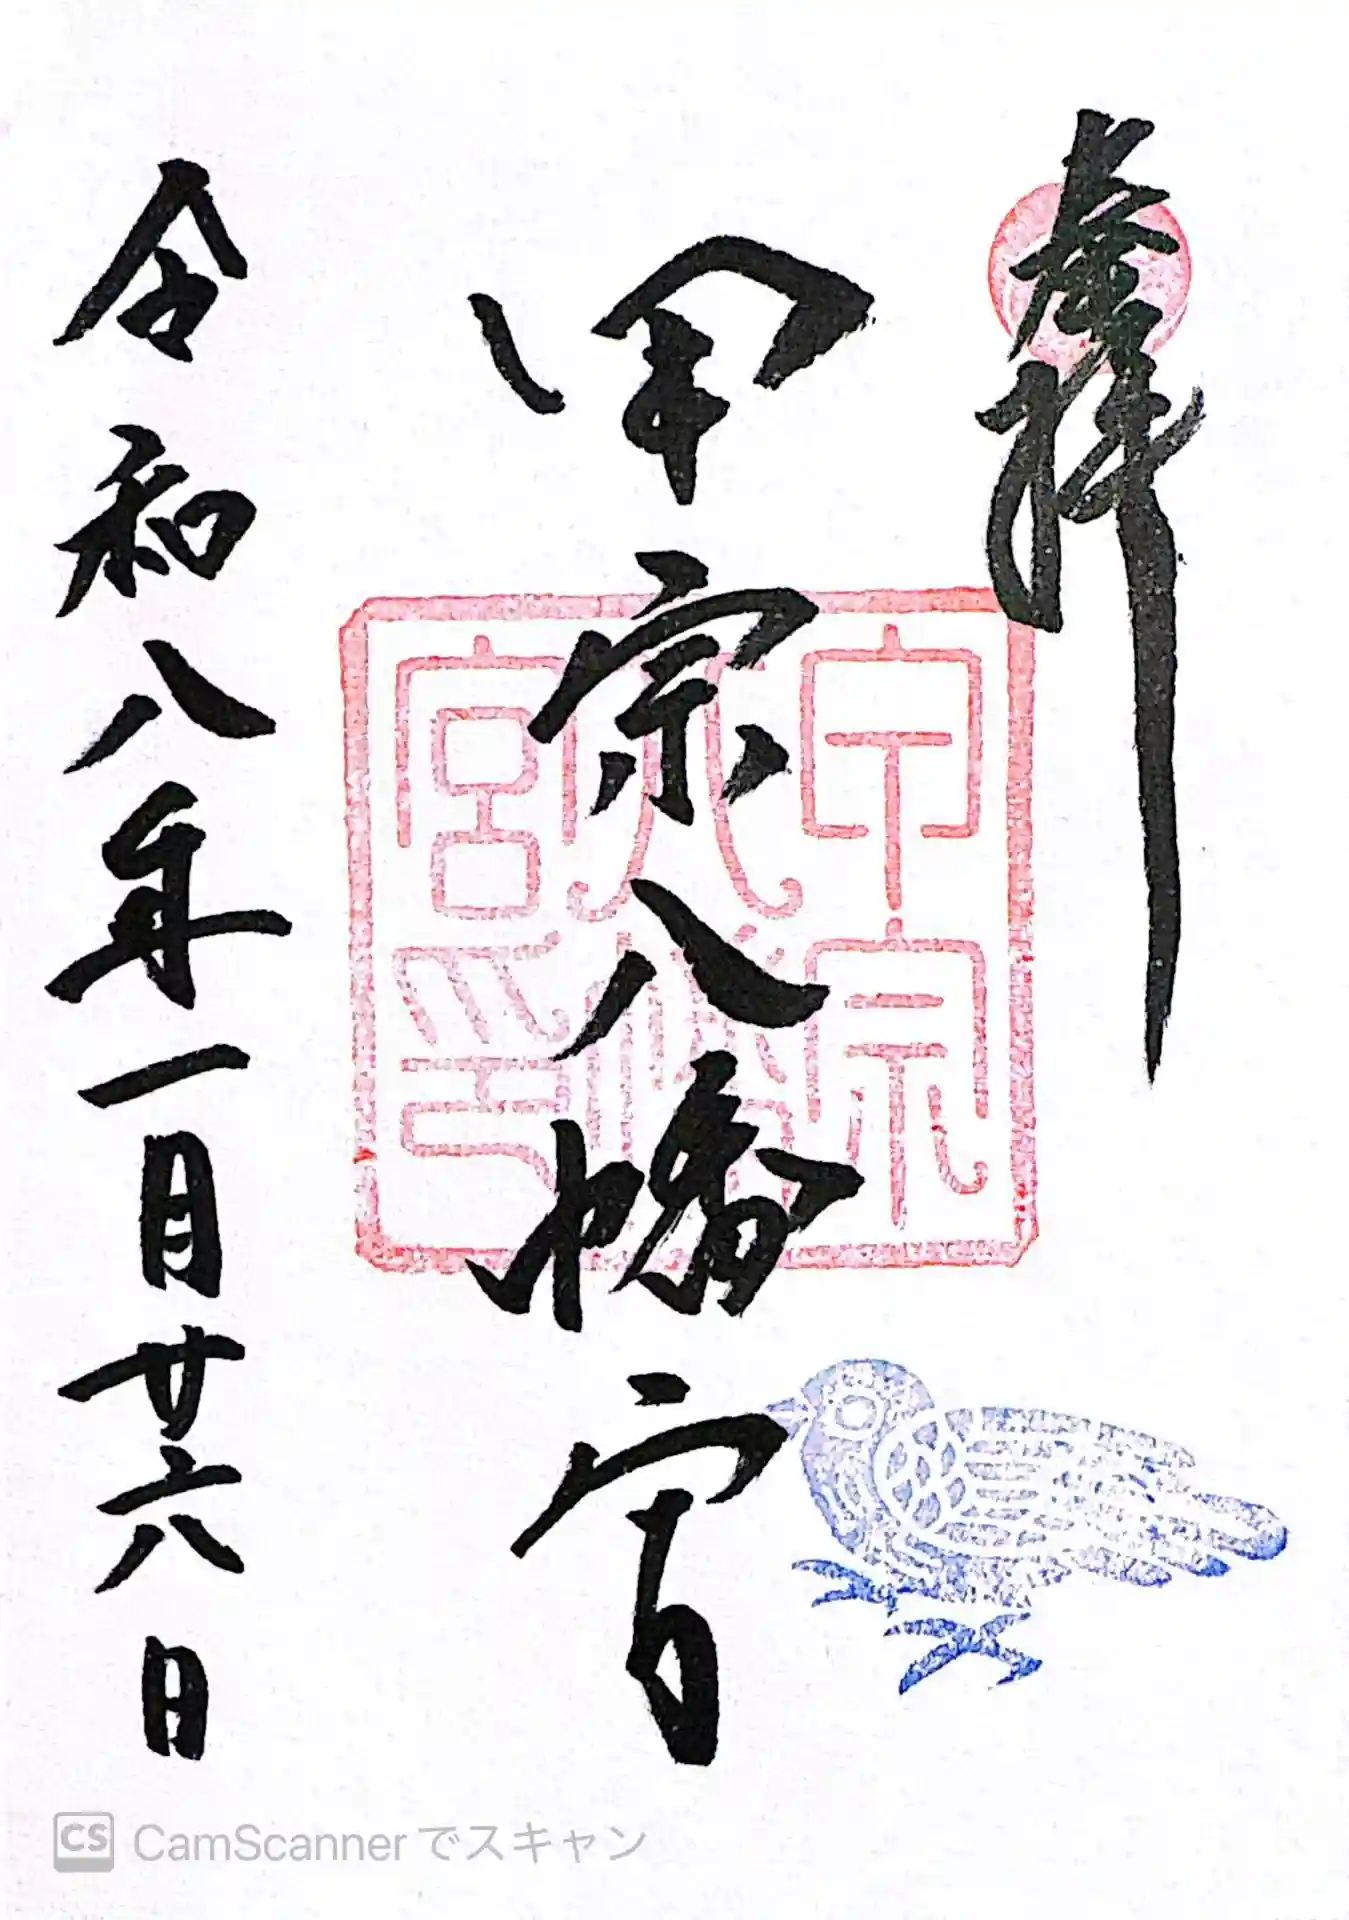 奉拝
甲宗八幡宮
甲宗八幡宮印
令和八年一月廿六日
CS CamScannerでスキャン